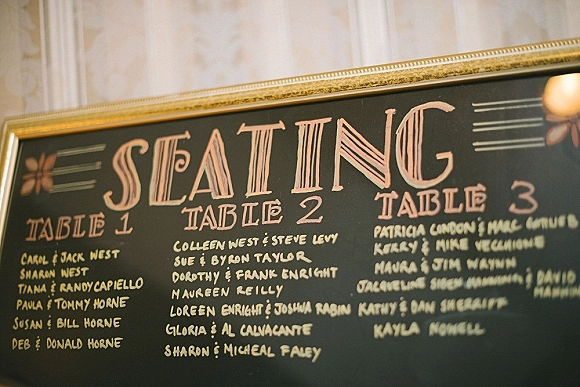 SEATING
TABLE 1
CAROL & JACK WEST
SHARON WEST
TIANA & RANDY CAPIELLO
PAULA & TOMMY HORNE
SUSAN & BILL HORNE
DEB & DONALD HORNE
TABLE 2
COLLEEN WEST & STEVE LEVY
SUE & BYRON TAYLOR
DOROTHY & FRANK ENRIGHT
MAUREEN REILLY
LOREEN ENRIGHT & JOSHUA RABIN
GLORIA & AL CALVACANTE
SHARON & MICHEAL FALEY
TABLE 3
PATRICIA CONDON & MARC GOTLIEB
KERRY & MIKE VECCHIONE
MAURA & JIM WRYNN
JACQUELINE & DAVID
KATHY & DAN SHERRIFF
KAYLA NOWELL